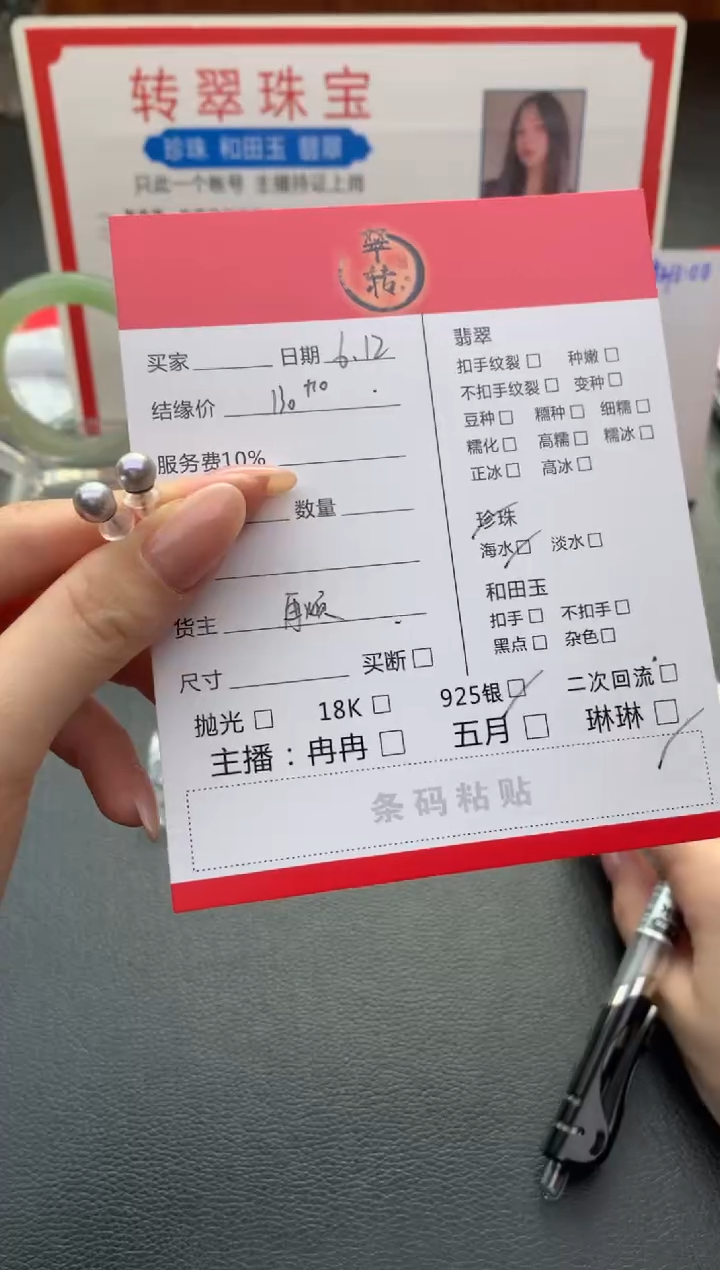 转翠珠宝
珍珠 和田玉 翡翠
只此一个帐号 主播持证上岗
翠转
买家 日期 6.12
结缘价
服务费10%
数量
货主
尺寸 买断
翡翠
扣手纹裂 种嫩
不扣手纹裂 变种
豆种 糯种 细糯
糯化 高糯 糯冰
正冰 高冰
珍珠
海水 淡水
和田玉
扣手 不扣手
黑点 杂色
抛光 18K 925银 二次回流
主播：冉冉 五月 琳琳
条码粘贴